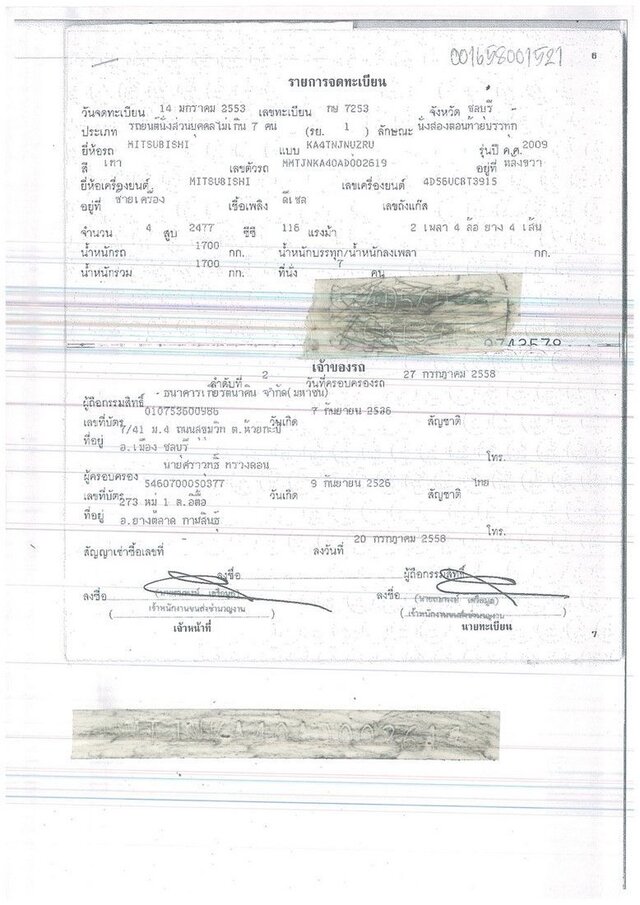 001658001521
6
รายการจดทะเบียน
วันจดทะเบียน 14 มกราคม 2553 เลขทะเบียน กษ 7253 จังหวัด ชลบุรี
ประเภท รถยนต์นั่งส่วนบุคคลไม่เกิน 7 คน (รย. 1 ) ลักษณะ นั่งสองตอนท้ายบรรทุก
ยี่ห้อรถ MITSUBISHI แบบ KA4TNJNUZRU รุ่นปี ค.ศ. 2009
สี เทา เลขตัวรถ MMTJNKA40AD002619 อยู่ที่ หลังขวา
ยี่ห้อเครื่องยนต์ MITSUBISHI เลขเครื่องยนต์ 4D56UCBT3915
อยู่ที่ ซ้ายเครื่อง เชื้อเพลิง ดีเซล เลขถังแก๊ส
จำนวน 4 สูบ 2477 ซีซี 116 แรงม้า 2 เพลา 4 ล้อ ยาง 4 เส้น
น้ำหนักรถ 1700 กก. น้ำหนักบรรทุก/น้ำหนักลงเพลา กก.
น้ำหนักรวม 1700 กก. ที่นั่ง 7 คน
เจ้าของรถ
ลำดับที่ 2 วันที่ครอบครองรถ 27 กรกฎาคม 2558
ผู้ถือกรรมสิทธิ์ ธนาคารเกียรตินาคิน จำกัด(มหาชน)
เลขที่บัตร 010753600986 วันเกิด 7 กันยายน 2536 สัญชาติ
ที่อยู่ 7/41 ม.4 ถนนสุขุมวิท ต.ห้วยกะปิ
อ.เมือง ชลบุรี โทร.
ผู้ครอบครอง นายศราวุทธิ์
เลขที่บัตร 5460700050377 วันเกิด 9 กันยายน 2526 สัญชาติ ไทย
ที่อยู่ 273 หมู่ 1 ต.อิตื้อ
อ.ยางตลาด กาฬสินธุ์ โทร.
สัญญาเช่าซื้อเลขที่ ลงวันที่ 20 กรกฎาคม 2558
ลงชื่อ ผู้ถือกรรมสิทธิ์
ลงชื่อ ลงชื่อ
เจ้าพนักงานขนส่งชำนาญงาน เจ้าพนักงานขนส่งชำนาญงาน
เจ้าหน้าที่ นายทะเบียน
7